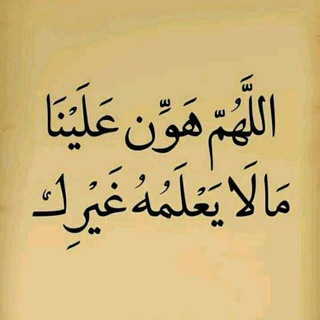 اللَّهُمّ هَوِّن عَلَيْنَا
مَالَا يَعْلَمُهُ غَيْرِكَ